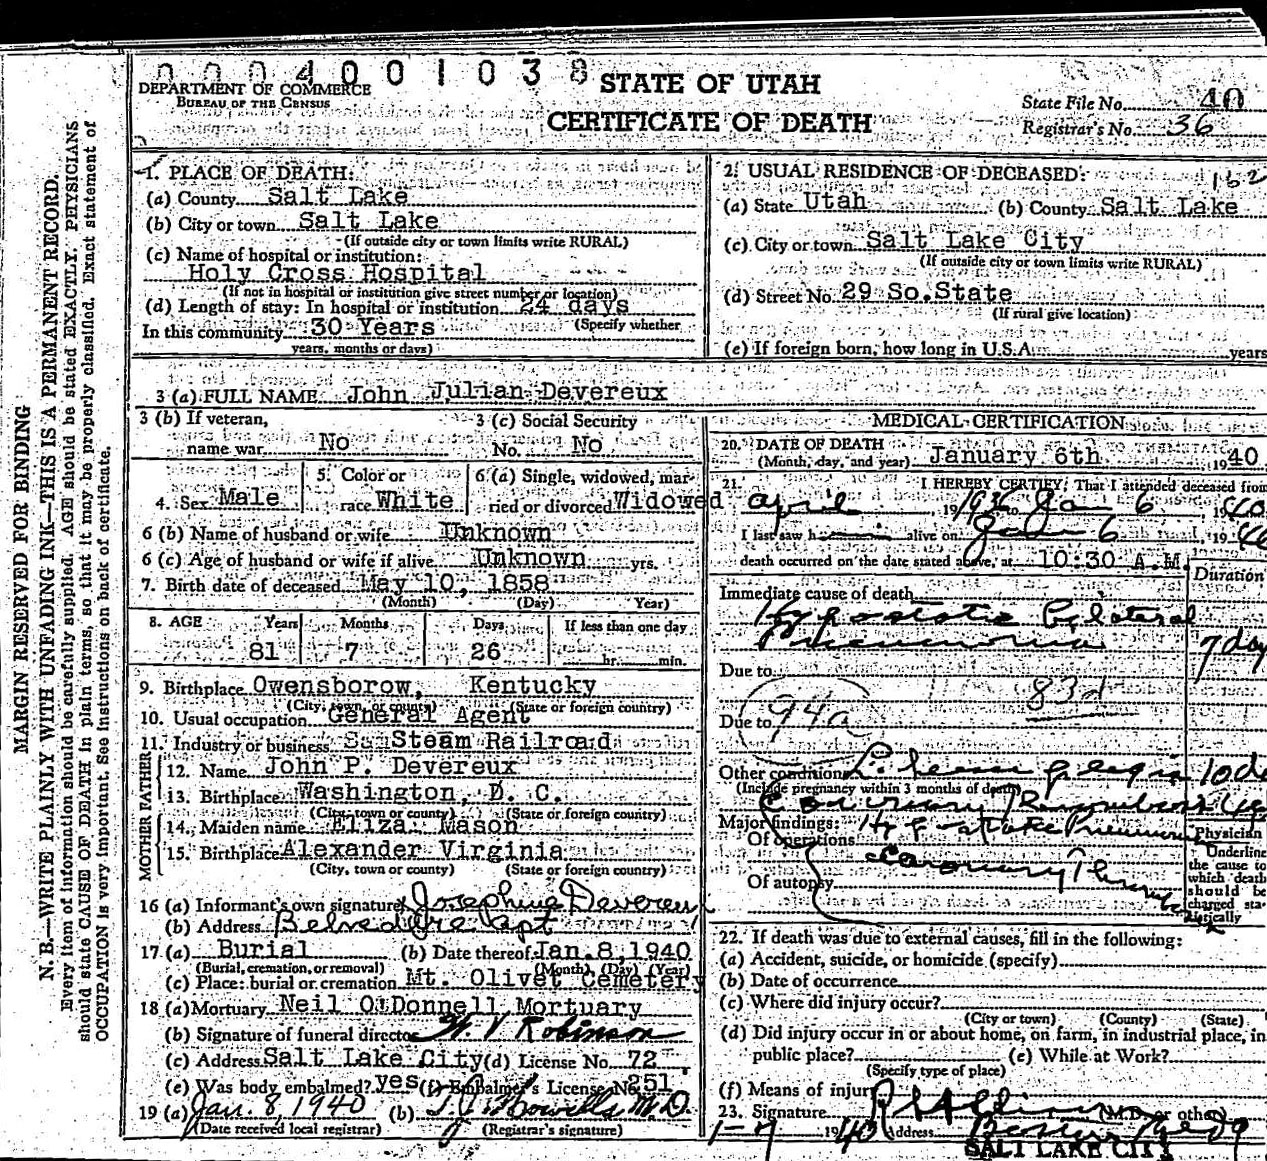 0004001038
STATE OF UTAH
CERTIFICATE OF DEATH
DEPARTMENT OF COMMERCE
BUREAU OF THE CENSUS
State File No. 40
Registrar's No. 36
MARGIN RESERVED FOR BINDING
N. B.—WRITE PLAINLY WITH UNFADING INK—THIS IS A PERMANENT RECORD.
Every item of information should be carefully supplied. AGE should be stated EXACTLY. PHYSICIANS
should state CAUSE OF DEATH in plain terms, so that it may be properly classified. Exact statement of
OCCUPATION is very important. See instructions on back of certificate.
1. PLACE OF DEATH:
(a) County Salt Lake
(b) City or town Salt Lake
(If outside city or town limits write RURAL)
(c) Name of hospital or institution:
Holy Cross Hospital
(If not in hospital or institution give street number or location)
(d) Length of stay: In hospital or institution 24 days
In this community 30 Years (Specify whether
years, months or days)
2. USUAL RESIDENCE OF DECEASED: 162
(a) State Utah (b) County Salt Lake
(c) City or town Salt Lake City
(If outside city or town limits write RURAL)
(d) Street No. 29 So.State
(If rural give location)
(e) If foreign born, how long in U.S.A. years
3 (a) FULL NAME John Julian Devereux
3 (b) If veteran, name war No
3 (c) Social Security No. No
4. Sex Male
5. Color or race White
6 (a) Single, widowed, married or divorced Widowed
6 (b) Name of husband or wife Unknown
6 (c) Age of husband or wife if alive Unknown yrs.
7. Birth date of deceased May 10, 1858
(Month) (Day) Year)
8. AGE Years Months Days If less than one day
81 7 26 hr. min.
9. Birthplace Owensborow, Kentucky
(City, town, or county) (State or foreign country)
10. Usual occupation General Agent
11. Industry or business Steam Railroad
FATHER
12. Name John P. Devereux
13. Birthplace Washington, D. C.
(City, town or county) (State or foreign country)
MOTHER
14. Maiden name Eliza Mason
15. Birthplace Alexander Virginia
(City, town or county) (State or foreign country)
16 (a) Informant's own signature Josephine Devereux
(b) Address Belvedere Apt
17 (a) Burial (b) Date thereof Jan.8,1940
(Burial, cremation, or removal) (Month) (Day) (Year)
(c) Place: burial or cremation Mt. Olivet Cemetery
18 (a) Mortuary Neil O'Donnell Mortuary
(b) Signature of funeral director W. V Robinson
(c) Address Salt Lake City (d) License No. 72
(e) Was body embalmed? yes (f) Embalmer's License No. 251
19 (a) Jan. 8, 1940 (b) Howells M.D.
(Date received local registrar) (Registrar's signature)
MEDICAL CERTIFICATION
20. DATE OF DEATH January 6th 1940
(Month, day, and year)
21. I HEREBY CERTIFY, That I attended deceased from
April 1936 to Jan 6, 1940
I last saw h alive on Jan 6, 1940
death occurred on the date stated above, at 10:30 A.M.
Immediate cause of death Duration
Hypostatic Bilateral
Pneumonia 7 day
Due to 83d
Due to 94a
Other conditions L. hemiplegia 10 da
(Include pregnancy within 3 months of death)
Coronary
Major findings:
Of operations Hypostatic Pneumonia
Of autopsy Coronary
Physician
Underline
the cause to
which death
should be
charged statistically
22. If death was due to external causes, fill in the following:
(a) Accident, suicide, or homicide (specify)
(b) Date of occurrence
(c) Where did injury occur?
(City or town) (County) (State)
(d) Did injury occur in or about home, on farm, in industrial place, in
public place? (e) While at Work?
(Specify type of place)
(f) Means of injury
23. Signature (M.D. or other)
1-7 1940 Address
SALT LAKE CITY